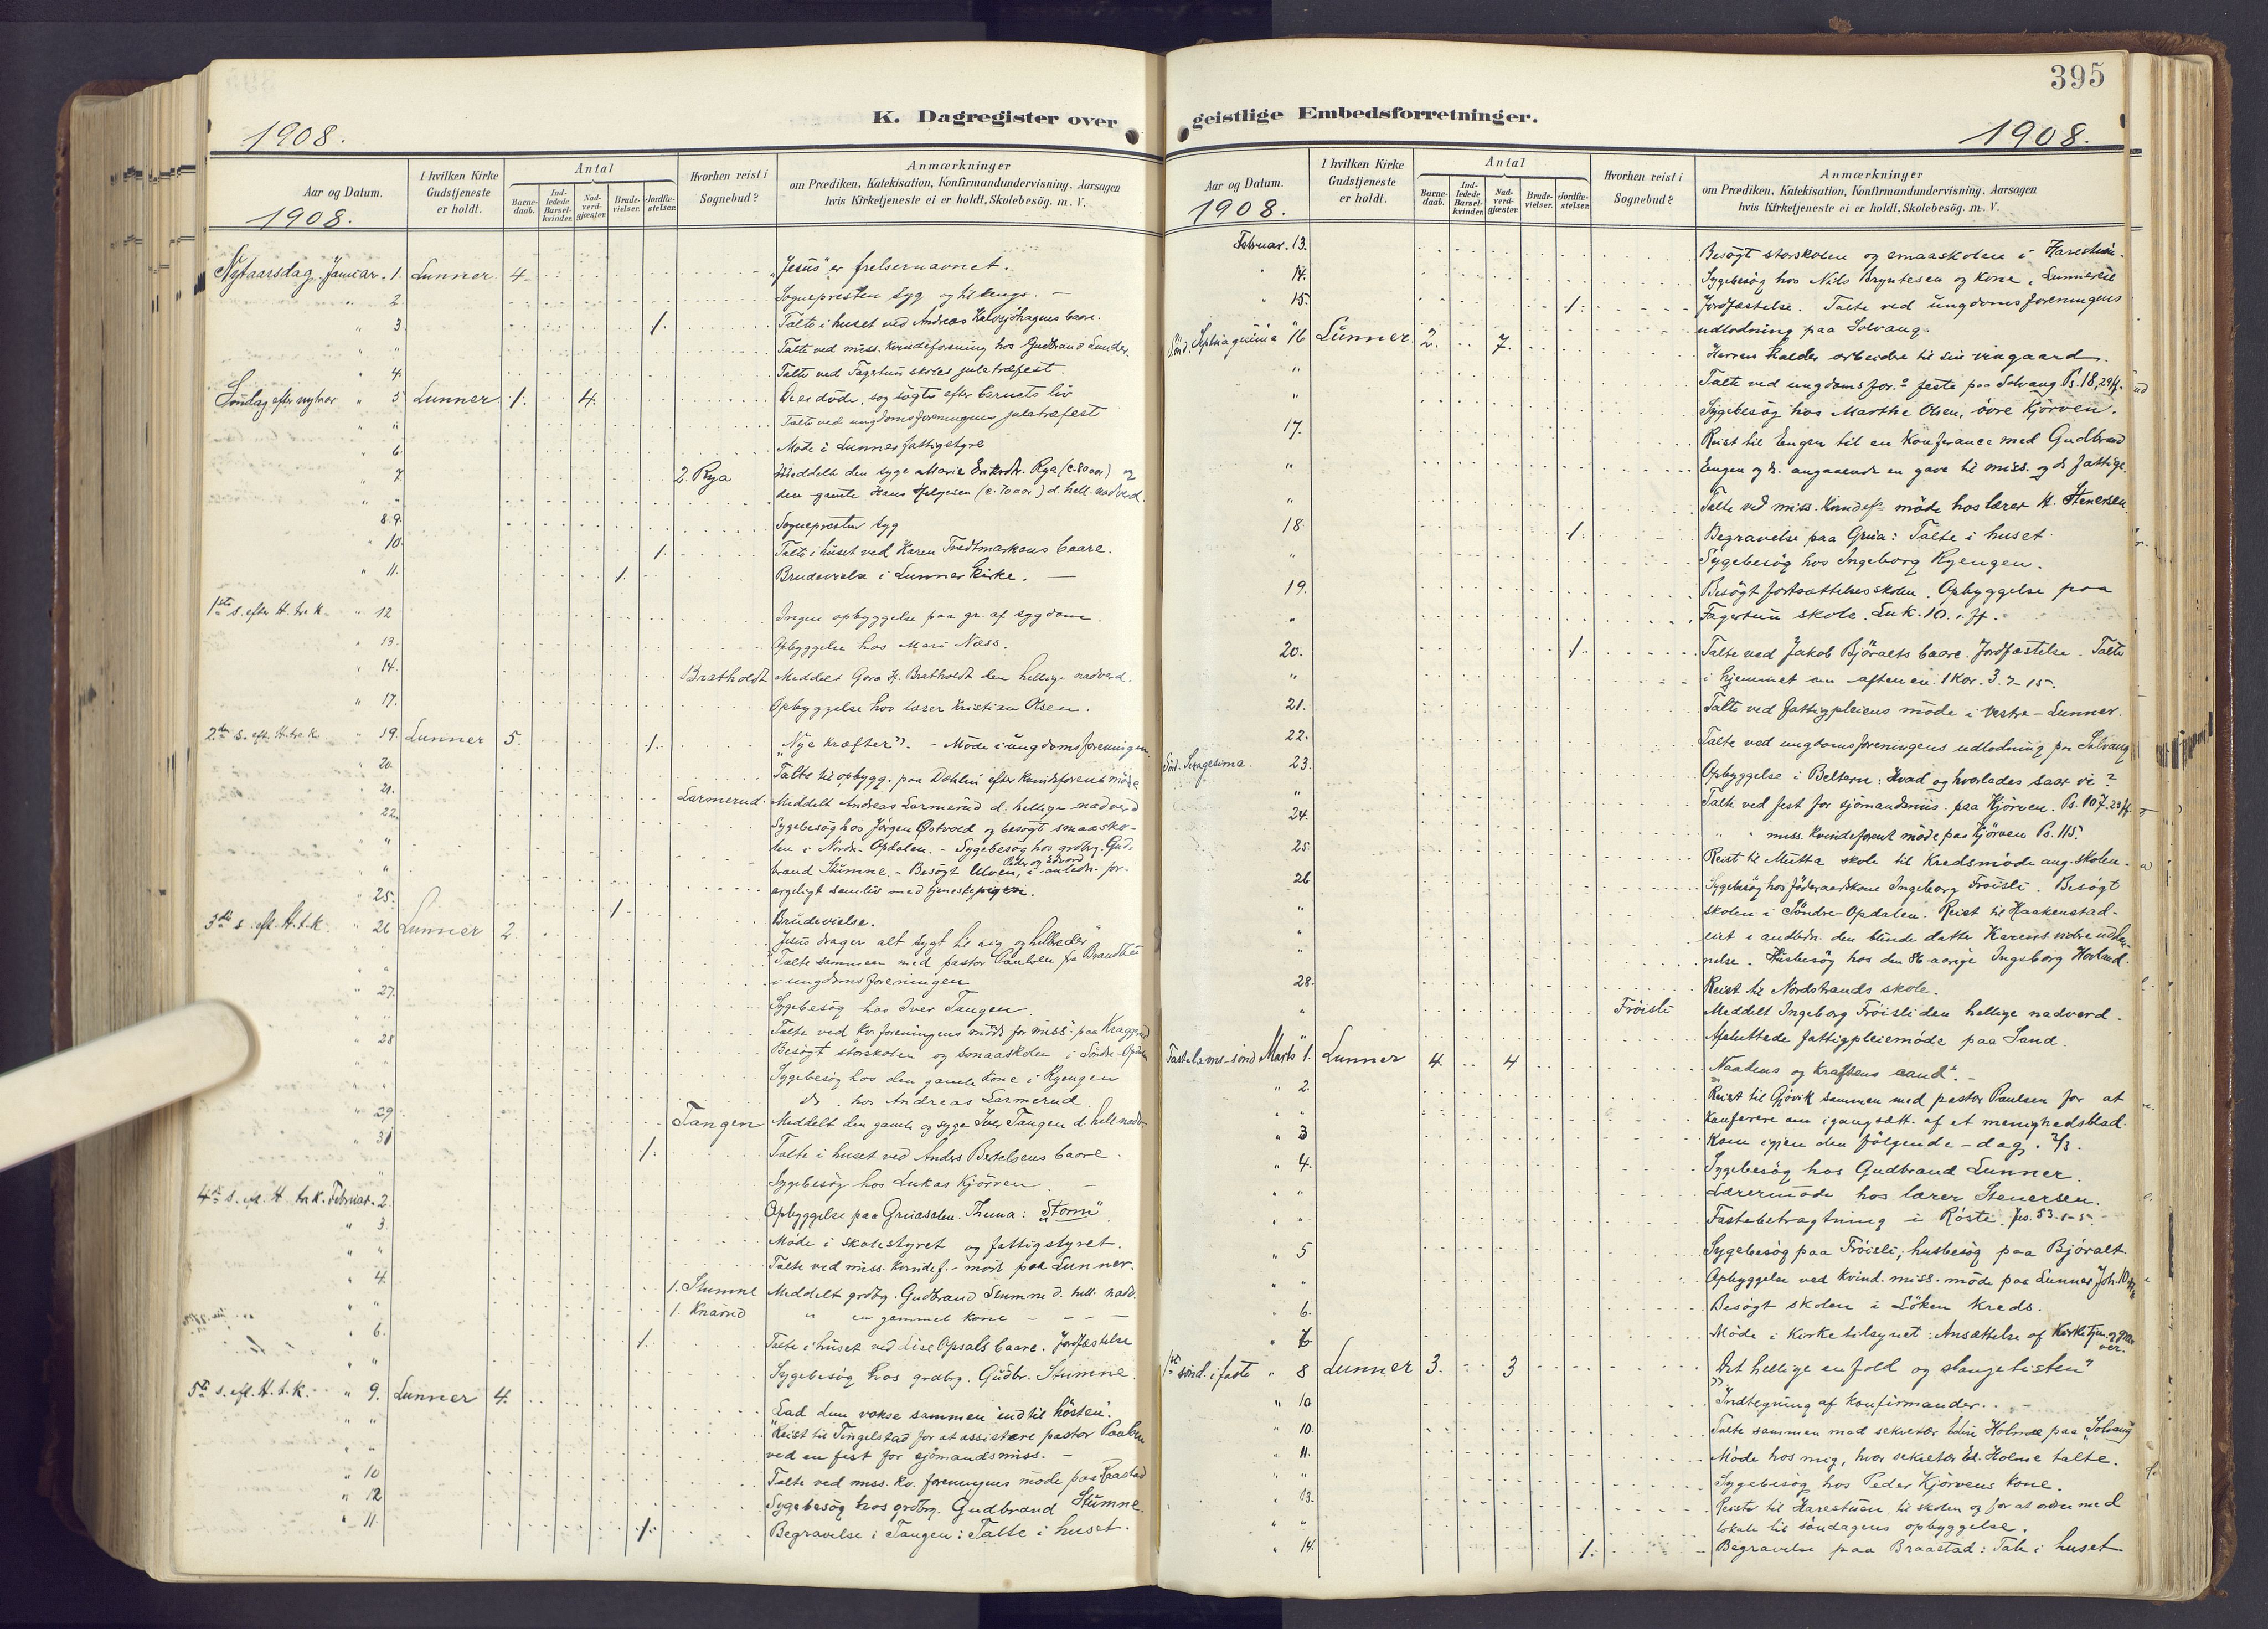 395
K. Dagregister over geistlige Embedsforretninger.
1908.
1908.
Aar og Datum.
I hvilken Kirke Gudstjeneste er holdt.
Antal
Barne-daab.
Ind-ledede Barsel-kvinder.
Nad-verd-gjæster.
Brude-vielser.
Jordfæ-stelser.
Hvorhen reist i Sognebud?
Anmærkninger
om Prædiken, Katekisation, Konfirmandundervisning, Aarsagen
hvis Kirketjeneste ei er holdt, Skolebesög. m. V.
1908.
Nytaarsdag. Januar. 1. Lunner 4. "Jesus" er frelsernavnet.
" 2. Sognepresten syg og til sengs. —
" 3. 1. Talte i huset ved Andreas Kalvsjöhagens baare.
" " Talte ved miss. kvindeforening hos Gudbrand Lunder.
" 4. Talte ved Fagertun skoles juletræfest.
Søndag efter nytaar " 5 Lunner 1. 4. De er döde, som sögte efter barnets liv
" " Talte ved ungdomsforeningens juletræfest
" 6. Möde i Lunner fattigstyre
" 7 2 Rya Meddelt den syge Marie Eriksdtr. Rya (c. 80 aar) og
" " den gamle Hans Helgesen (c. 70 aar) d. hell. nadverd.
8. 9. Sognepresten syg
" 10. 1. Talte i huset ved Karen Tvedtmarkens baare.
" 11. 1. Brudevielse i Lunner kirke. —
1ste s. efter H. tre k. " 12 Ingen opbyggelse paa gr. af sygdom.
" 13. Opbyggelse hos Mari Næss.
" 14. Bratholdt Meddelt Goro H. Bratholdt den hellige nadverd.
" 17. Opbyggelse hos lærer Kristian Olsen.
2den s. eft. H. tre k. " 19. Lunner 5. 1. "Nye kræfter". - Möde i ungdomsforeningen
" 20. Talte til opbygg. paa Dæhlin efter kvindeforens möde
" 21. Larmerud. Meddelt Andreas Larmerud d. hellige nadverd
" 22. Sygebesög hos Jörgen Östvold og besögt smaasko-
" " len i Nordre Opdalen. - Sygebesög hos grdbrg. Gud-
" " brand Stumne. - Besögt Ulven, Peder og Edvard i anledn. for-
argeligt samliv med tjenestepigen.
" 25. 1. Brudevielse.
3die s. eft. H. t. k. " 26 Lunner 2 "Jesus drager alt sygt til sig og helbreder"
Talte sammen med pastor Paulsen fra Brandbu
" " i ungdomsforeningen
" 27. Sygebesög hos Iver Tangen
" " Talte ved kv. foreningens möde for miss. paa Kraggerud
" 28 Besögt storskolen og smaaskolen i Söndre-Opdalen
" " Sygebesög hos den gamle kone i Ryengen
" " do. hos Andreas Larmerud
" 29 Tangen Meddelt den gamle og syge Iver Tangen d. hell. nadv.
" 31 1. Talte i huset ved Anders Bertelsens baare.
" " Sygebesög hos Lukas Kjörven. —
4de s. eft. H. tre k. Februar. 2. Opbyggelse paa Gruasalen. Thema: "Storm"
" 3 Möde i skolestyret og fattigstyret.
" " Talte ved miss. kvindef. - möde paa Lunner.
" 4. 1. Stumne Meddelt grdbrg. Gudbrand Stumne d. hell. nadv.
" " 1. Knarud " en gammel kone - - -
" 6. 1. Talte i huset ved Lise Opsals baare. Jordfæstelse
" " Sygebesög hos grdbrg. Gudbr. Stumne
5te s. eft. H. t. k. " 9. Lunner 4. "Lad dem vokse sammen indtil hösten".
" " Reist til Tingelstad for at assistere pastor Paulsen
" " ved en fest for sjömandsmiss. —
" 10 Talte ved miss. kv. foreningens möde paa Raastad
" 12 Sygebesög hos grdbrg. Gudbrand Stumne.
" 11. 1. Begravelse i Tangen: Talte i huset.
1908.
Aar og Datum.
I hvilken Kirke Gudstjeneste er holdt.
Antal
Barne-daab.
Ind-ledede Barsel-kvinder.
Nad-verd-gjæster.
Brude-vielser.
Jordfæ-stelser.
Hvorhen reist i Sognebud?
Anmærkninger
om Prædiken, Katekisation, Konfirmandundervisning, Aarsagen
hvis Kirketjeneste ei er holdt, Skolebesög. m. V.
Februar. 13. Besögt storskolen og smaaskolen i Harestuen.
" 14. Sygebesög hos Nils Bryntesen og kone, Lunnereie
" 15. 1. Jordfæstelse. Talte ved ungdomsforeningens
udlodning paa Solvang.
Sönd. Septuagesima " 16 Lunner. 2. 7. Herren kalder arbeidere til sin vingaard.
" Talte ved ungdomsfor.s feste paa Solvang Ps. 18, 29 ff.
" Sygebesög hos Marthe Olsen, övre Kjörven.
17. Reist til Engen til en konferance med Gudbrand
" Engen og h. angaaende en gave til miss. og de fattige.
" Talte ved miss. kvindef. möde hos lærer H. Stenersen
18. 1. Begravelse paa Grua: Talte i huset.
" Sygebesög hos Ingeborg Ryengen.
19. Besögt fortsættelsesskolen. Opbyggelse paa
" Fagertun skole. Luk. 10. 1 ff.
20. 1. Talte ved Jakob Björalts baare. Jordfæstelse. Talte
" i hjemmet om aftenen. 1 Kor. 3. 7-15.
21. Talte ved fattigpleiens möde i Vestre-Lunner.
22. Talte ved ungdomsforeningens udlodning paa Solvang
Sönd. Sexagesima. 23. Opbyggelse i Beltern: Hvad og hvorledes saar vi?
" Talte ved fest for sjömandsmis. paa Kjörven. Ps. 107. 23 ff
24. " " miss. kvindeforens möde paa Kjörven Ps. 115.
25. Reist til Mutta skole til kredsmöde ang. skolen.
26 Sygebesög hos föderaadskone Ingeborg Fröisli. Besögt
" skolen i Söndre Opdalen. Reist til Haakenstad-
" eiet i anledn. den blinde datter Karens videre uddan-
" nelse. Husbesög hos den 86-aarige Ingeborg Hovland.
28. Reist til Nordstrands skole.
" Fröisli Meddelt Ingeborg Fröisli den hellige nadverd.
" Afsluttede fattigpleiemöde paa Sand.
Fastelavns-sönd. Marts 1. Lunner 4. 4 "Naadens og kraftens aand". -
" 2. Reist til Gjövik sammen med pastor Paulsen for at
" " konferere om igangsætt. af et menighedsblad.
" 3 Kom igjen den fölgende - dag. 3/3.
" 4. Sygebesög hos Gudbrand Lunner.
" " Lærermöde hos lærer Stenersen.
" " Fastebetragtning i Röste. Jes. 53. 1-5.
" 5 Sygebesög paa Fröisli; husbesög paa Björalt
" " Opbyggelse ved kvind. miss. möde paa Lunner Joh. 10
" 6. Besögt skolen i Löken kreds.
" 6 Möde i kirketilsynet: Ansættelse af kirketjen. og graver.
1ste sönd. i faste " 8 Lunner 3. 3 "Det hellige enfold og slangelisten"
" 10 Indtegning af konfirmander. . -
" 10. Talte sammen med sekretær Edin Holme paa "Solvang"
" 11. Möde hos mig, hvor sekretær Ed. Holme talte.
" " Sygebesög hos Peder Kjörvens kone.
" 13. Reiste til Harestuen til skolen og for at ordne med
" " lokale til söndagens opbyggelse.
" 14. 1. Begravelse paa Braastad: Tale i huset